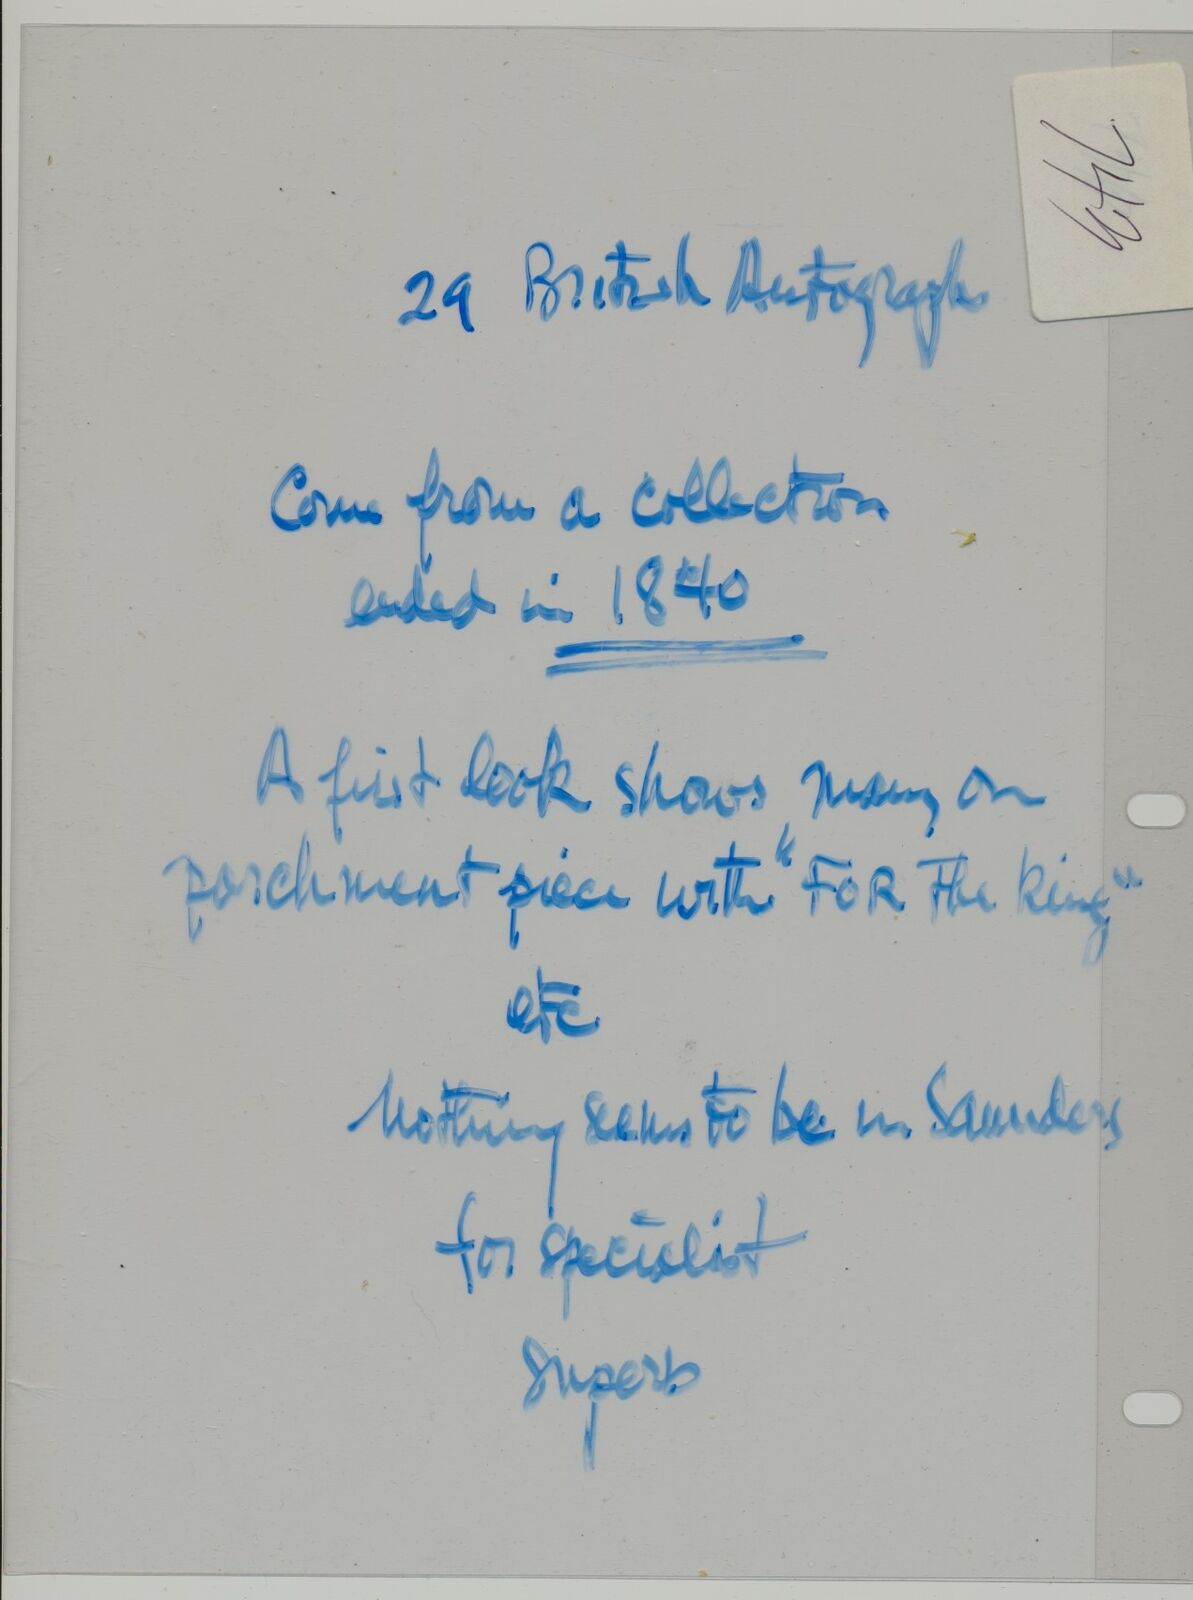 29 British Autographs
Come from a collection
ended in 1840
A first look shows many on
parchment piece with "FOR The King"
etc
Nothing seems to be in Saunders
for specialist
Superb